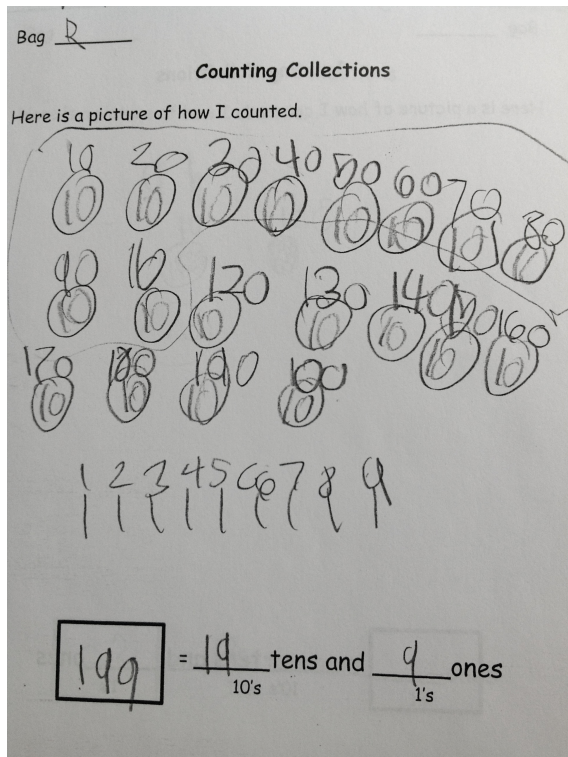 Bag R
Counting Collections
Here is a picture of how I counted.
10 20 30 40 50 60 70 80
10 10 10 10 10 10 10 10
90 120 130 140 150 160
10 10 10 10 10 10 10
170 180 190
10 10 10 10
1 2 3 4 5 6 7 8 9
199 = 19 tens and 9 ones
10's 1's